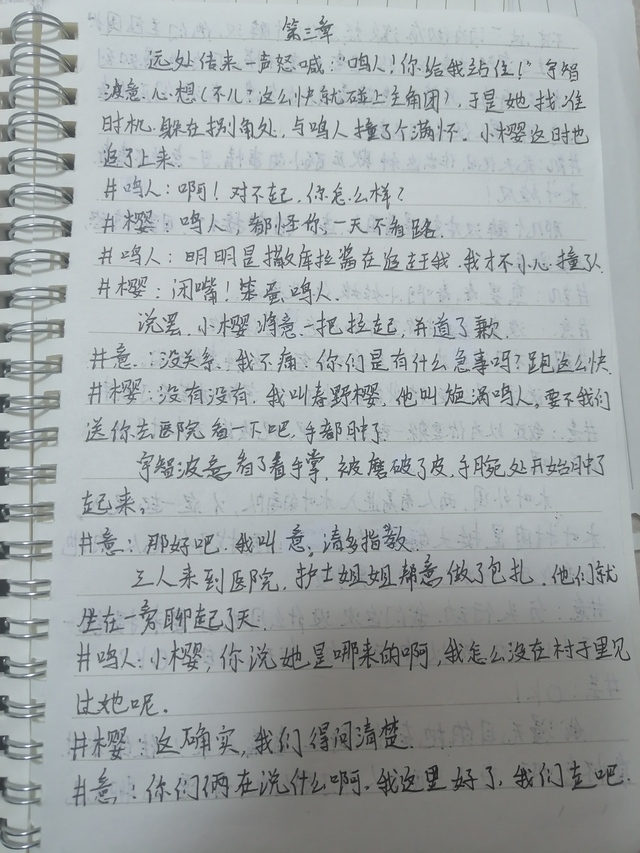 第三章
远处传来一声怒喊："鸣人！你给我站住！"宇智
波意心想（不儿？这么快就碰上主角团），于是她找准
时机躲在拐角处，与鸣人撞了个满怀。小樱这时也
追了上来.
#鸣人：啊！对不起，你怎么样？
#樱：鸣人，都怪你，一天不看路.
#鸣人：明明是撒库拉酱在追赶我，我才不小心撞了人
#樱：闭嘴！笨蛋鸣人.
说罢，小樱将意一把拉起，并道了歉.
#意：没关系，我不痛，你们是有什么急事吗？跑这么快.
#樱：没有没有，我叫春野樱，他叫旋涡鸣人，要不我们
送你去医院看一下吧，手都肿了
宇智波意看了看手掌，被磨破了皮，手腕处开始肿了
起来。
#意：那好吧，我叫 意，请多指教.
三人来到医院，护士姐姐帮意做了包扎，他们就
坐在一旁聊起了天.
#鸣人：小樱，你说她是哪来的啊，我怎么没在村子里见
过她呢。
#樱：这确实，我们得问清楚.
#意：你们俩在说什么啊，我这里好了，我们走吧.